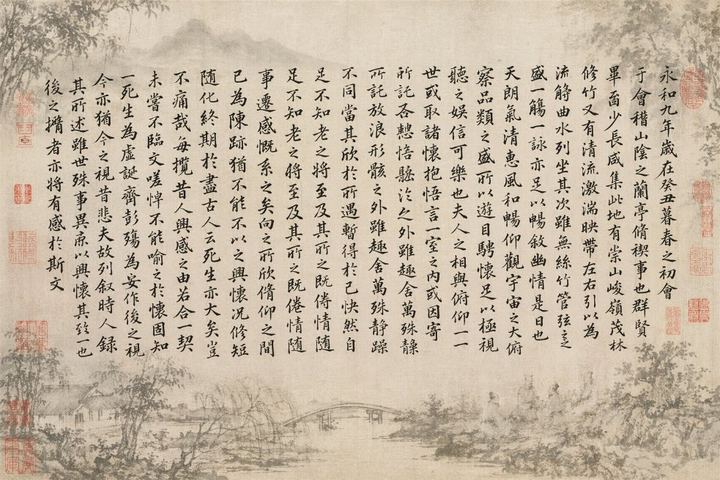 永和九年歲在癸丑暮春之初會
于會稽山陰之蘭亭脩禊事也群賢
畢 少長咸集此地有崇山峻嶺茂林
修竹又有清流激湍映帶左右引以為
流觴曲水列坐其次雖無絲竹管弦之
盛一觴一詠亦足以暢敘幽情是日也
天朗氣清惠風和暢仰觀宇宙之大俯
察品類之盛所以遊目騁懷足以極視
聽之娛信可樂也夫人之相與俯仰一一
世或取諸懷抱悟言一室之內或因寄
所託 外雖趣舍萬殊
所託放浪形骸之外雖趣舍萬殊靜躁
不同當其欣於所遇暫得於己快然自
足不知老之將至及其所之既倦情隨
足不知老之將至及其所之既倦情隨
事遷感慨系之矣向之所欣脩仰之間
已為陳跡猶不能不以之興懷況修短
隨化終期於盡古人云死生亦大矣豈
不痛哉每攬昔人興感之由若合一契
未嘗不臨文嗟悼不能喻之於懷固知
一死生為虛誕齊彭殤為妄作後之視
今亦猶今之視昔悲夫故列敘時人錄
其所述雖世殊事異 以興懷其致一也
後之攬者亦將有感於斯文